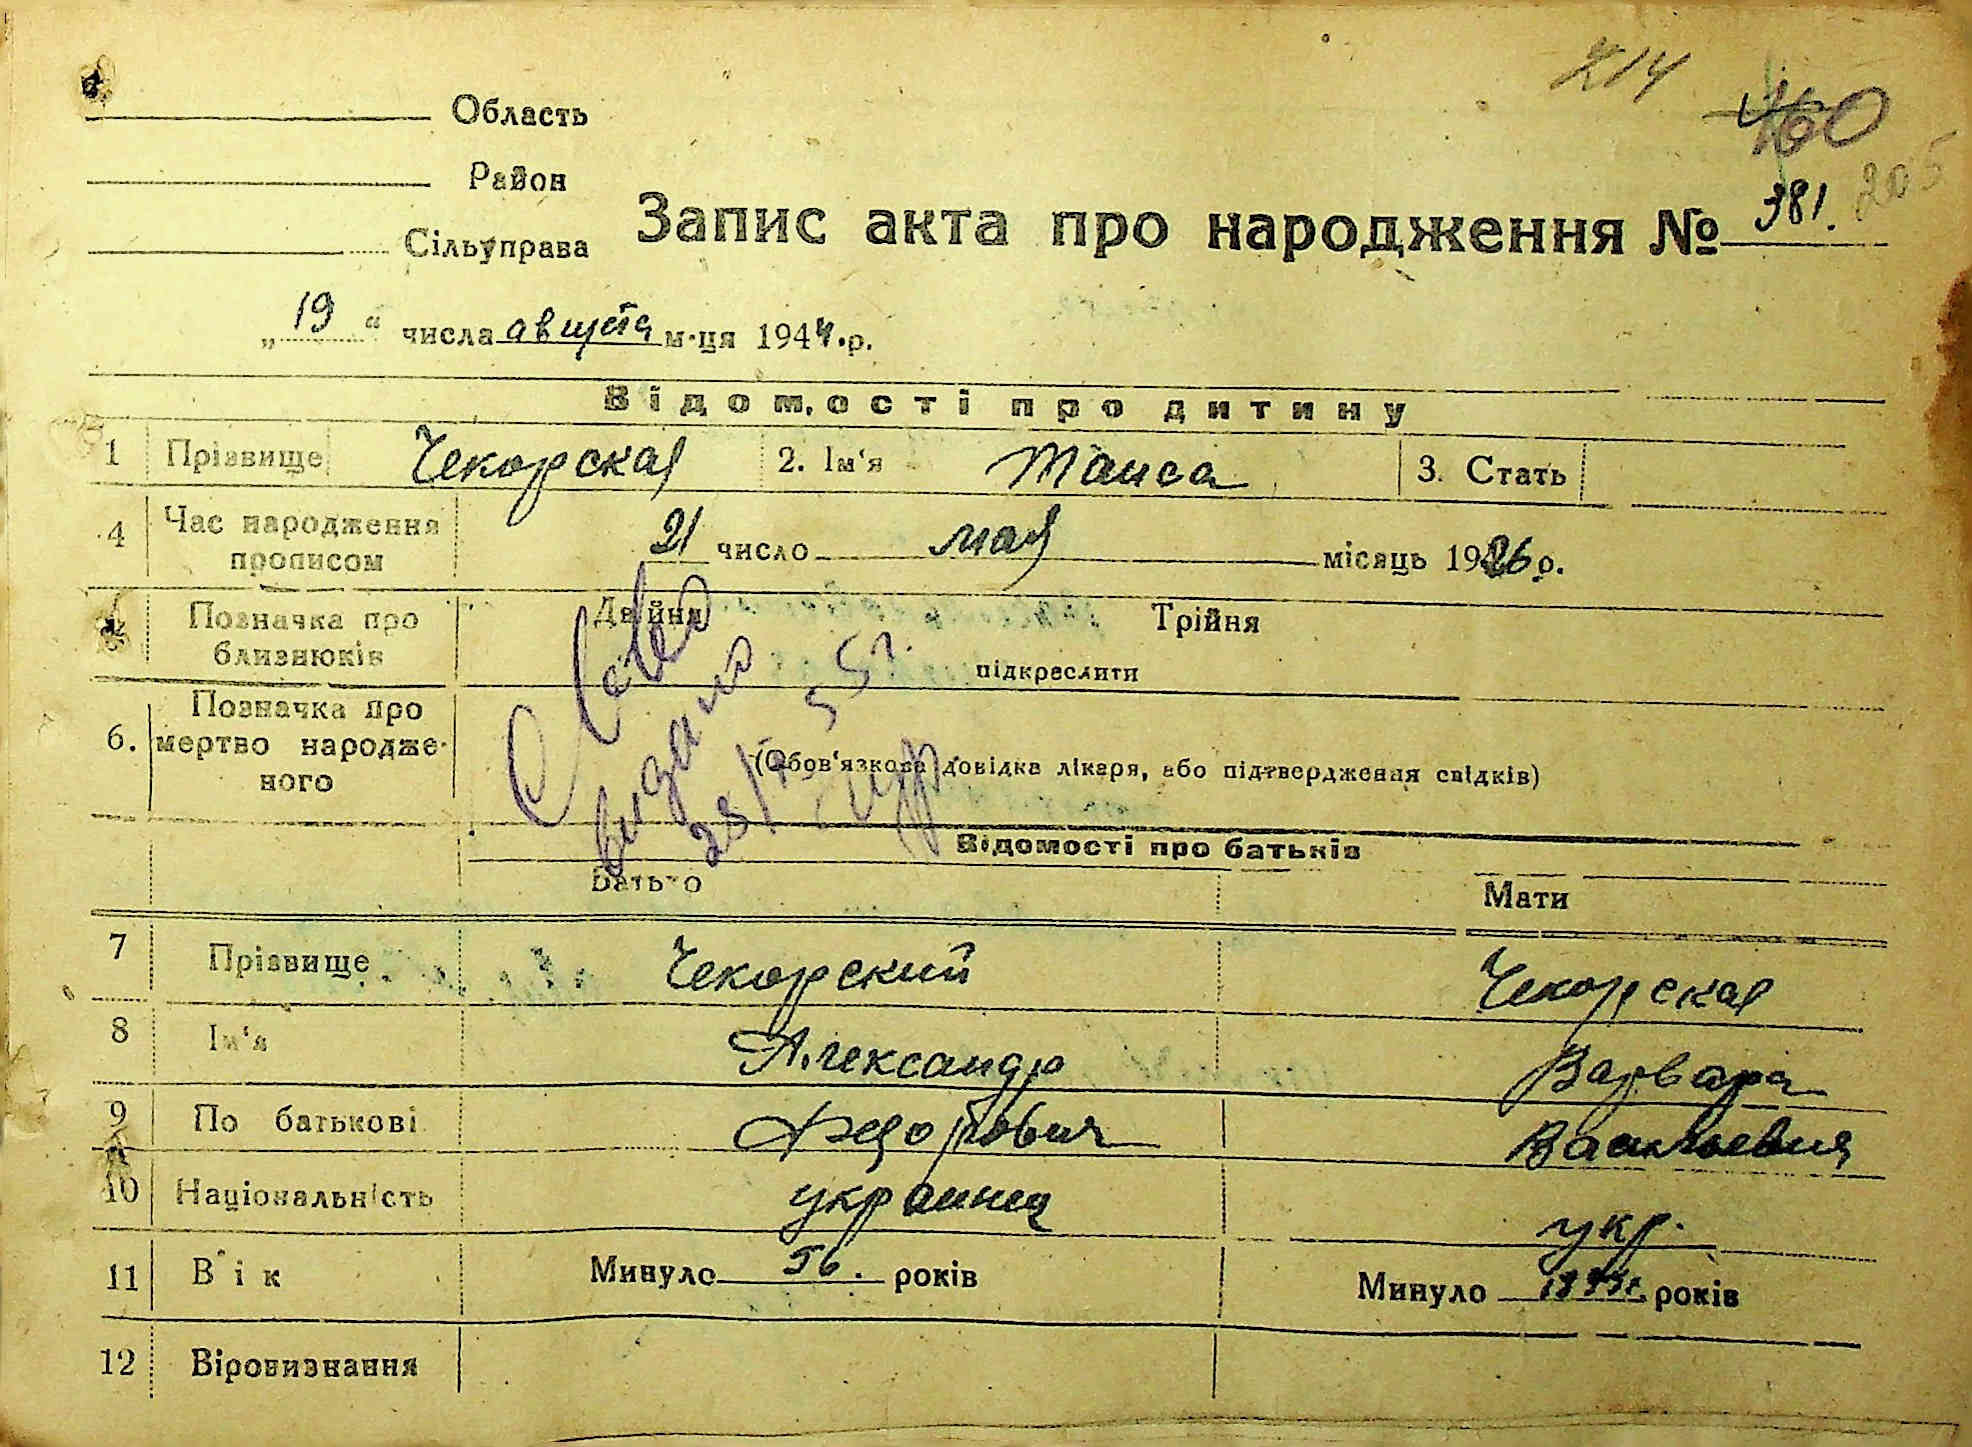 214
160
205
Область
Район
Сільуправа
Запис акта про народження № 381.
„19“ числа августа м-ця 1944.р.
Відомості про дитину
1 Прізвище Чекорская 2. Ім‘я Таиса 3. Стать
4 Час народження прописом 21 число мая місяць 1926 р.
Позначка про близнюків Двійня Трійня
підкреслити
6. Позначка про мертво народже-ного
(Обов‘язкова довідка лікаря, або підтвердження свідків)
видано
Відомості про батьків
Батько Мати
7 Прізвище Чекорский Чекорская
8 Ім‘я Александр Варвара
9 По батькові Федорович Васильевна
10 Національність украинец укр.
11 Вік Минуло 56. років Минуло років
12 Віровизнання